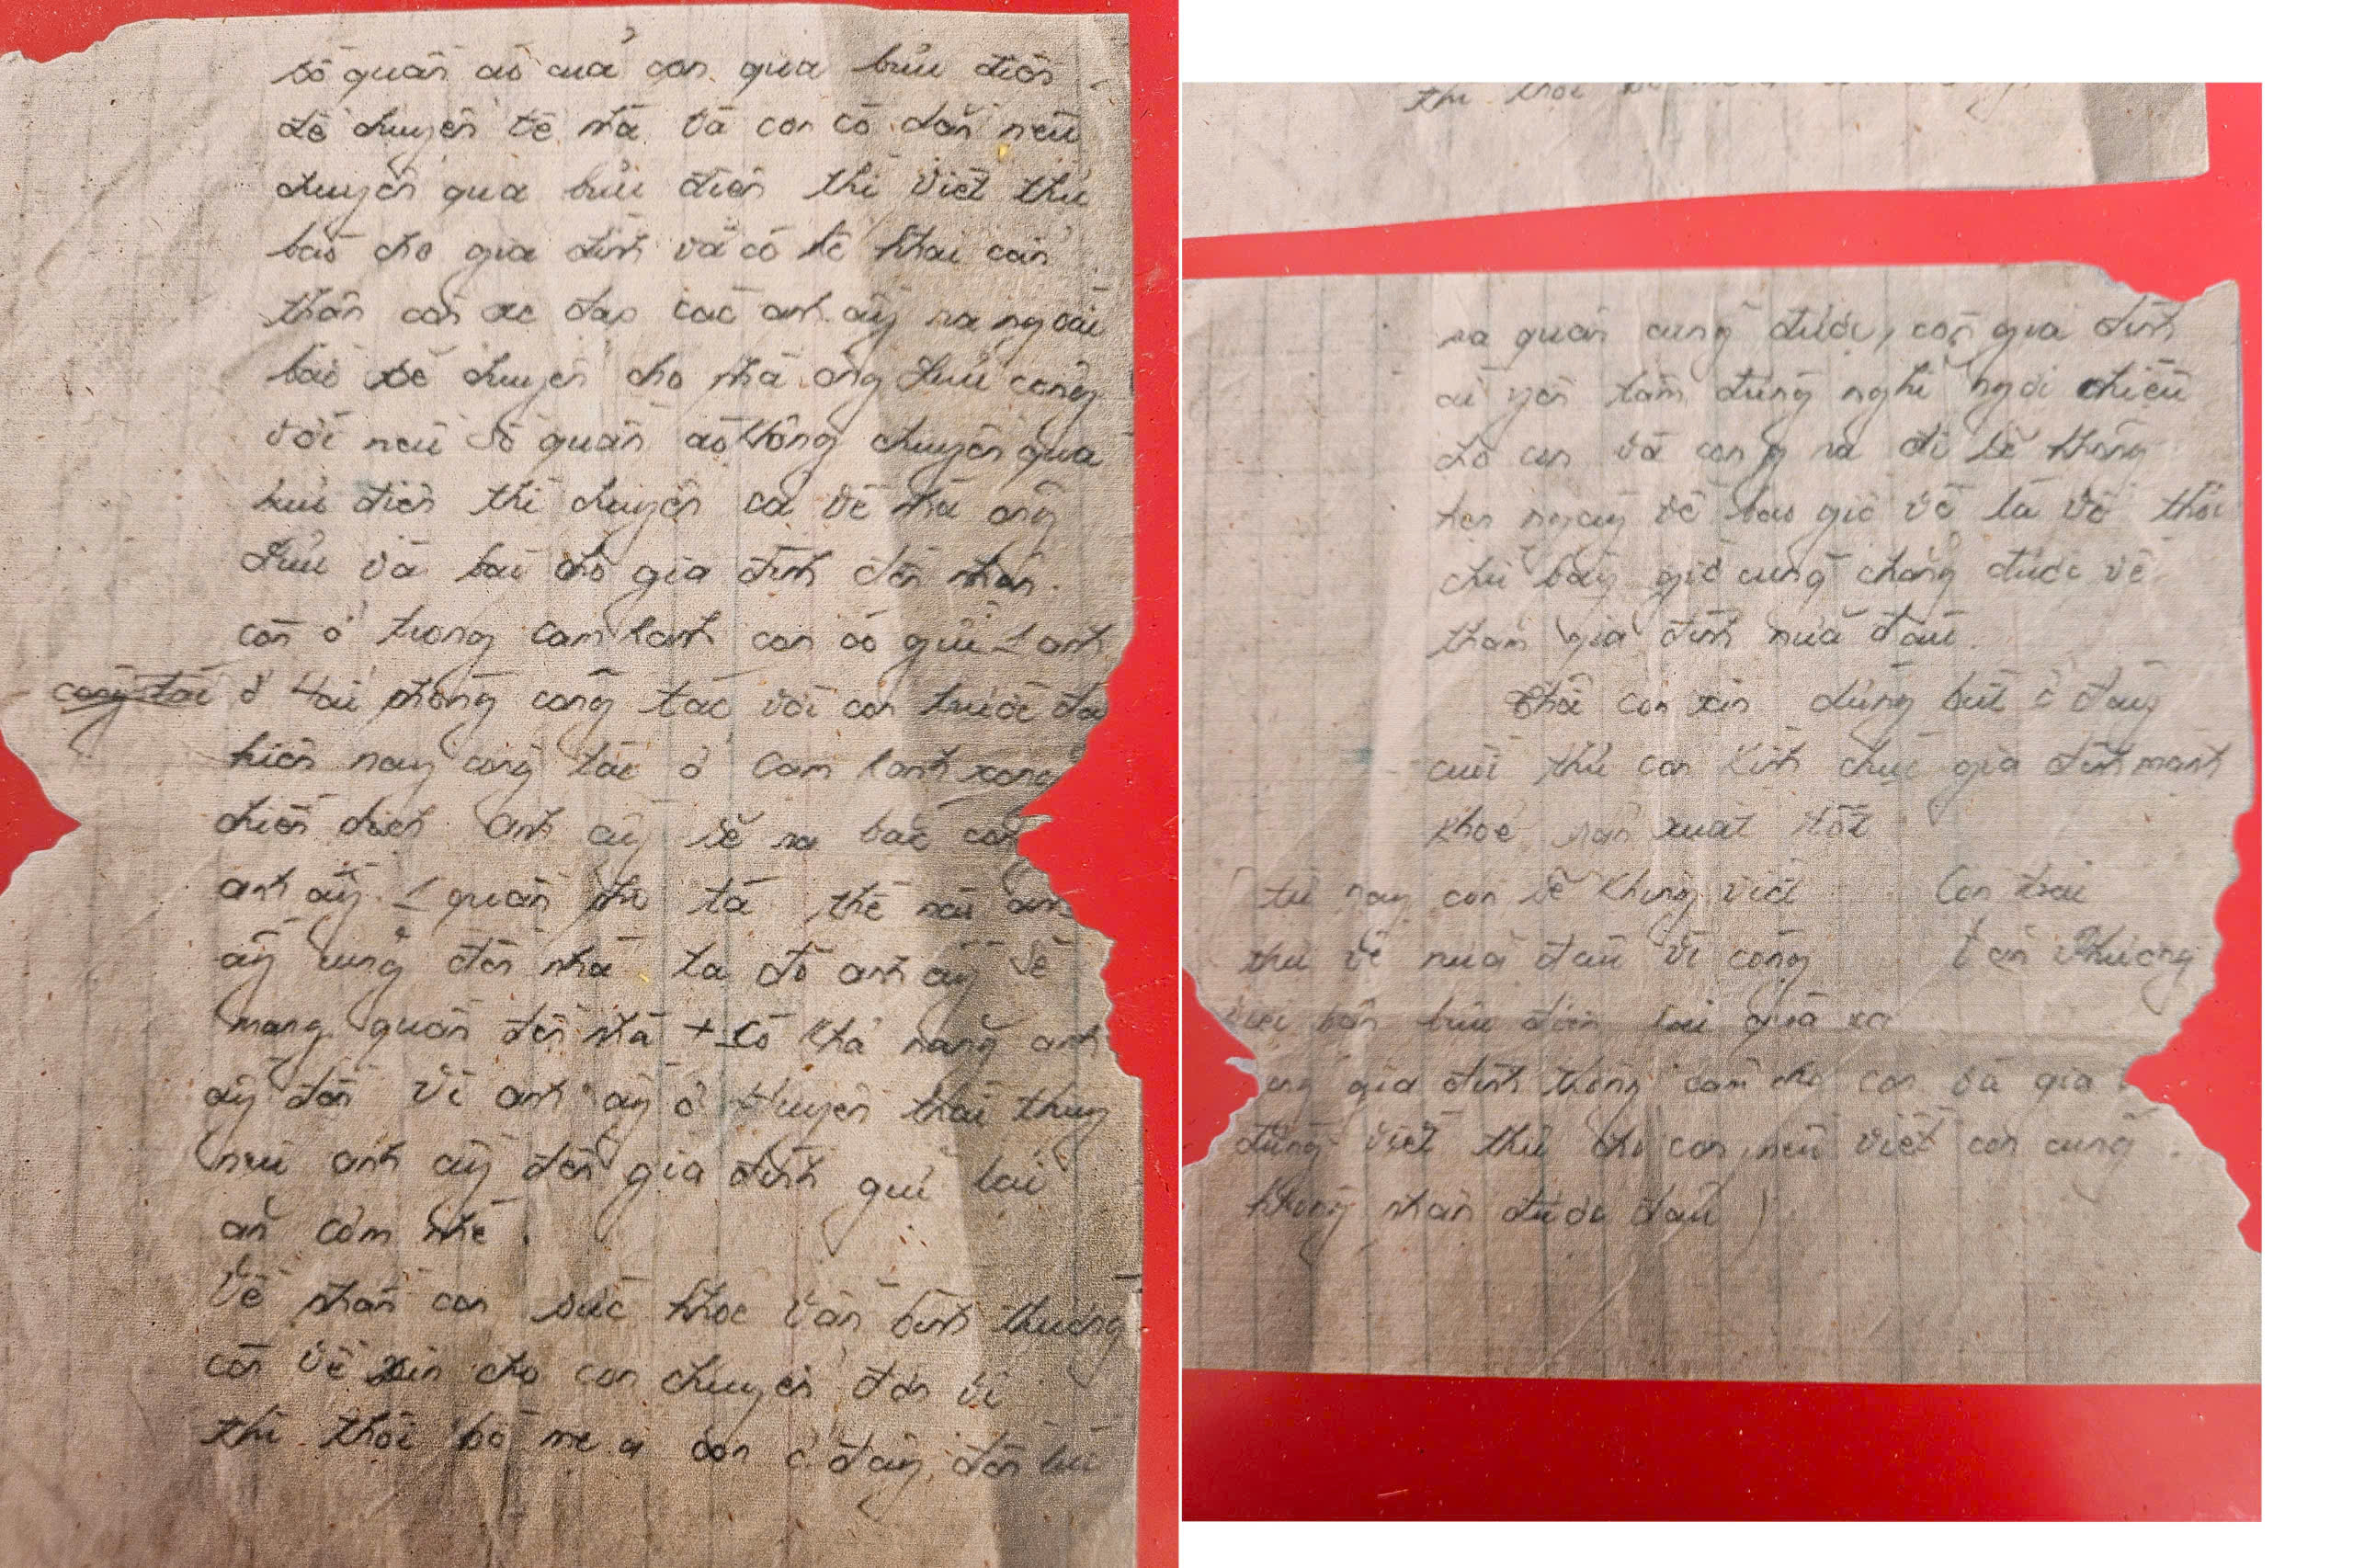 số quần áo của con qua bưu điện
để chuyển về nhà và con có dặn nếu
chuyển qua bưu điện thì viết thư
báo cho gia đình và có kê khai cẩn
thận còn xe đạp các anh ấy ra ngoài
bắc sẽ chuyển cho nhà ông Lưu cùng
với nếu số quần áo không chuyển qua
bưu điện thì chuyển cả về nhà ông
Lưu và báo cho gia đình đến nhận.
còn ở trong cam lanh con có gửi 1 anh
ở Hải phòng công tác với con trước đây
hiện nay công tác ở Cam lanh xong
chiến dịch anh ấy sẽ ra bắc con
anh ấy 1 quần phờ tá thế nào anh
ấy cũng đến nhà ta đó anh ấy sẽ
mang quần đến nhà + Có khả năng anh
ấy đến vì anh ấy ở Huyện thái thụy
nếu anh ấy đến gia đình giữ lại
ăn cơm nhé.
Về phần con sức khoẻ vẫn bình thường
còn về xin cho con chuyển đơn vị
thì thôi bố mẹ ạ con ở đây đến lúc
thì thôi bố mẹ
ra quân cũng được, còn gia đình
cứ yên tâm đừng nghĩ ngợi nhiều
cho con và con ra đi sẽ không
hẹn ngày về bao giờ về là về thôi
chứ bây giờ cũng chẳng được về
thăm gia đình nữa đâu.
Thôi con xin dừng bút ở đây
cuối thư con kính chúc gia đình mạnh
khoẻ sản xuất tốt
từ nay con sẽ không viết Con trai
thư về nữa đâu vì công Văn Phương
việc bận bưu điện lại quá xa
gia đình thông cảm cho con và gia
đừng viết thư cho con, nếu viết con cũng
không nhận được đâu )